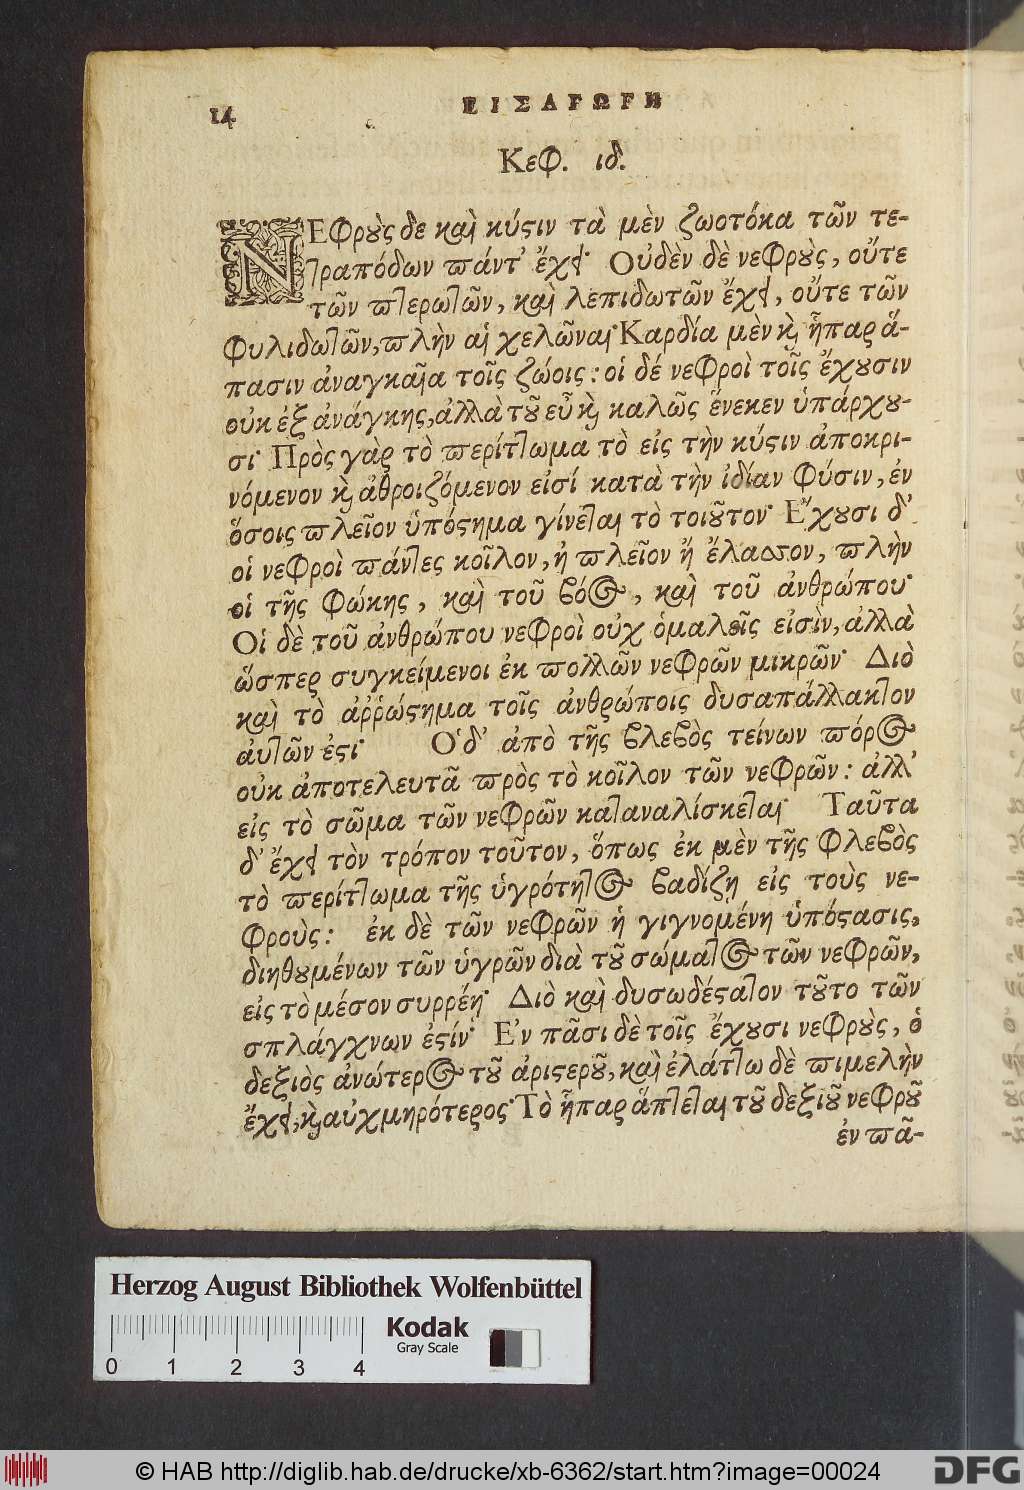 14
ΕΙΣΑΓΩΓΗ
Κεφ. ιδ.
ΝΕφροὺς δε καὶ κύστιν τὰ μὲν ζωοτόκα τῶν τε-
τραπόδων πάντ' ἔχει· Οὐδὲν δὲ νεφροὺς, οὔτε
τῶν πτερωτῶν, καὶ λεπιδωτῶν ἔχει, οὔτε τῶν
φυλιδωτῶν, πλὴν αἱ χελῶναι· Καρδία μὲν καὶ ἧπαρ ἅ-
πασιν ἀναγκαῖα τοῖς ζώοις: οἱ δέ νεφροὶ τοῖς ἔχουσιν
οὐκ ἐξ ἀνάγκης, ἀλλὰ τοῦ εὖ καὶ καλῶς ἕνεκεν ὑπάρχου-
σι· Πρὸς γὰρ τὸ περίττωμα τὸ εἰς τὴν κύστιν ἀποκρι-
νόμενον καὶ ἀθροιζόμενον εἰσί κατὰ τὴν ἰδίαν φύσιν, ἐν
ὅσοις πλεῖον ὑπόστημα γίνεται τὸ τοιοῦτον· Ἔχουσι δ'
οἱ νεφροὶ πάντες κοῖλον, ἠ πλεῖον ἤ ἔλασσον, πλὴν
οἱ τῆς φώκης, καὶ τοῦ βόος, καὶ τοῦ ἀνθρώπου·
Οἱ δὲ τοῦ ἀνθρώπου νεφροὶ οὐχ ὁμαλεῖς εἰσὶν, ἀλλὰ
ὥσπερ συγκείμενοι ἐκ πολλῶν νεφρῶν μικρῶν· Διὸ
καὶ τὸ ἀῤῥώστημα τοῖς ἀνθρώποις δυσαπάλλακτον
ἀυτῶν ἐστι· Ὁ δ' ἀπὸ τῆς βλεβὸς τείνων πόρος
οὐκ ἀποτελευτᾶ πρὸς τὸ κοῖλον τῶν νεφρῶν: ἀλλ'
εἰς τὸ σῶμα τῶν νεφρῶν καταναλίσκεται· Ταῦτα
δ' ἔχει τὸν τρόπον τοῦτον, ὅπως ἐκ μὲν τῆς φλεβὸς
τὸ περίττωμα τῆς ὑγρότητος βαδίζῃ εἰς τοὺς νε-
φροὺς: ἐκ δὲ τῶν νεφρῶν ἡ γιγνομένη ὑπόστασις,
διηθουμένων τῶν ὑγρῶν διὰ τοῦ σώματος τῶν νεφρῶν,
εἰς τὸ μέσον συρρέῃ· Διὸ καὶ δυσωδέστατον τοῦτο τῶν
σπλάγχνων ἐστίν· Ἐν πᾶσι δὲ τοῖς ἔχουσι νεφροὺς, ὁ
δεξιὸς ἀνώτερος τοῦ ἀριστεροῦ, καὶ ἐλάττω δὲ πιμελὴν
ἔχει, καὶ αὐχμηρότερος· Τὸ ἧπαρ ἅπτεται τοῦ δεξιοῦ νεφροῦ
ἐν πᾶ-
Herzog August Bibliothek Wolfenbüttel
Kodak
Gray Scale
0 1 2 3 4
© HAB http://diglib.hab.de/drucke/xb-6362/start.htm?image=00024
DFG